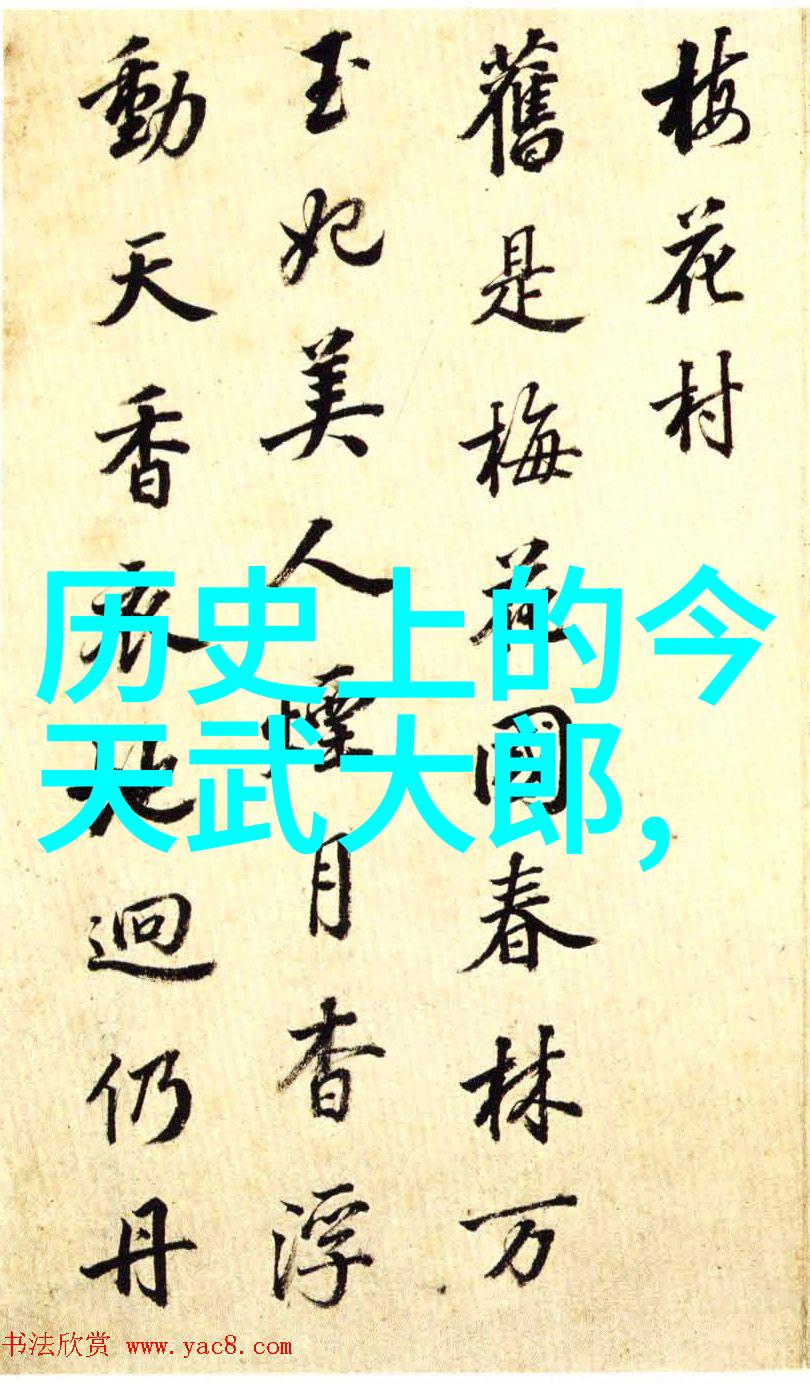 梅花村
舊是梅花國春林万
玉妃美人煙月杳浮
動天香衣袂迥仍丹
历史上的今
天武大郎，
书法欣赏 www.yac8.com